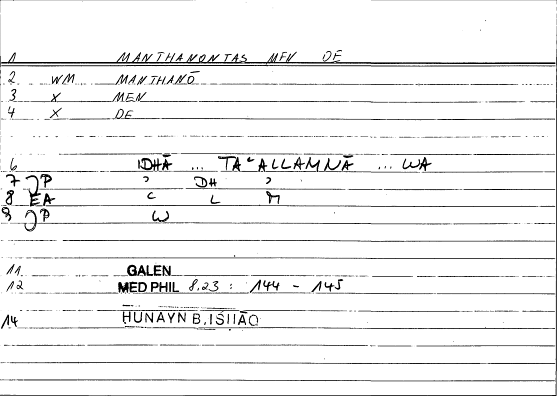 1 MANTHANONTAS MEN DE
2 WM MANTHANŌ
3 X MEN
4 X DE
6 IDHĀ ... TAʿALLAMNĀ ... WA
7 JP ʾ DH ʾ
8 EA ʿ L M
9 JP W
11 GALEN
12 MED PHIL 8.23 : 144 - 145
14 ḤUNAYN B. ISḤĀQ